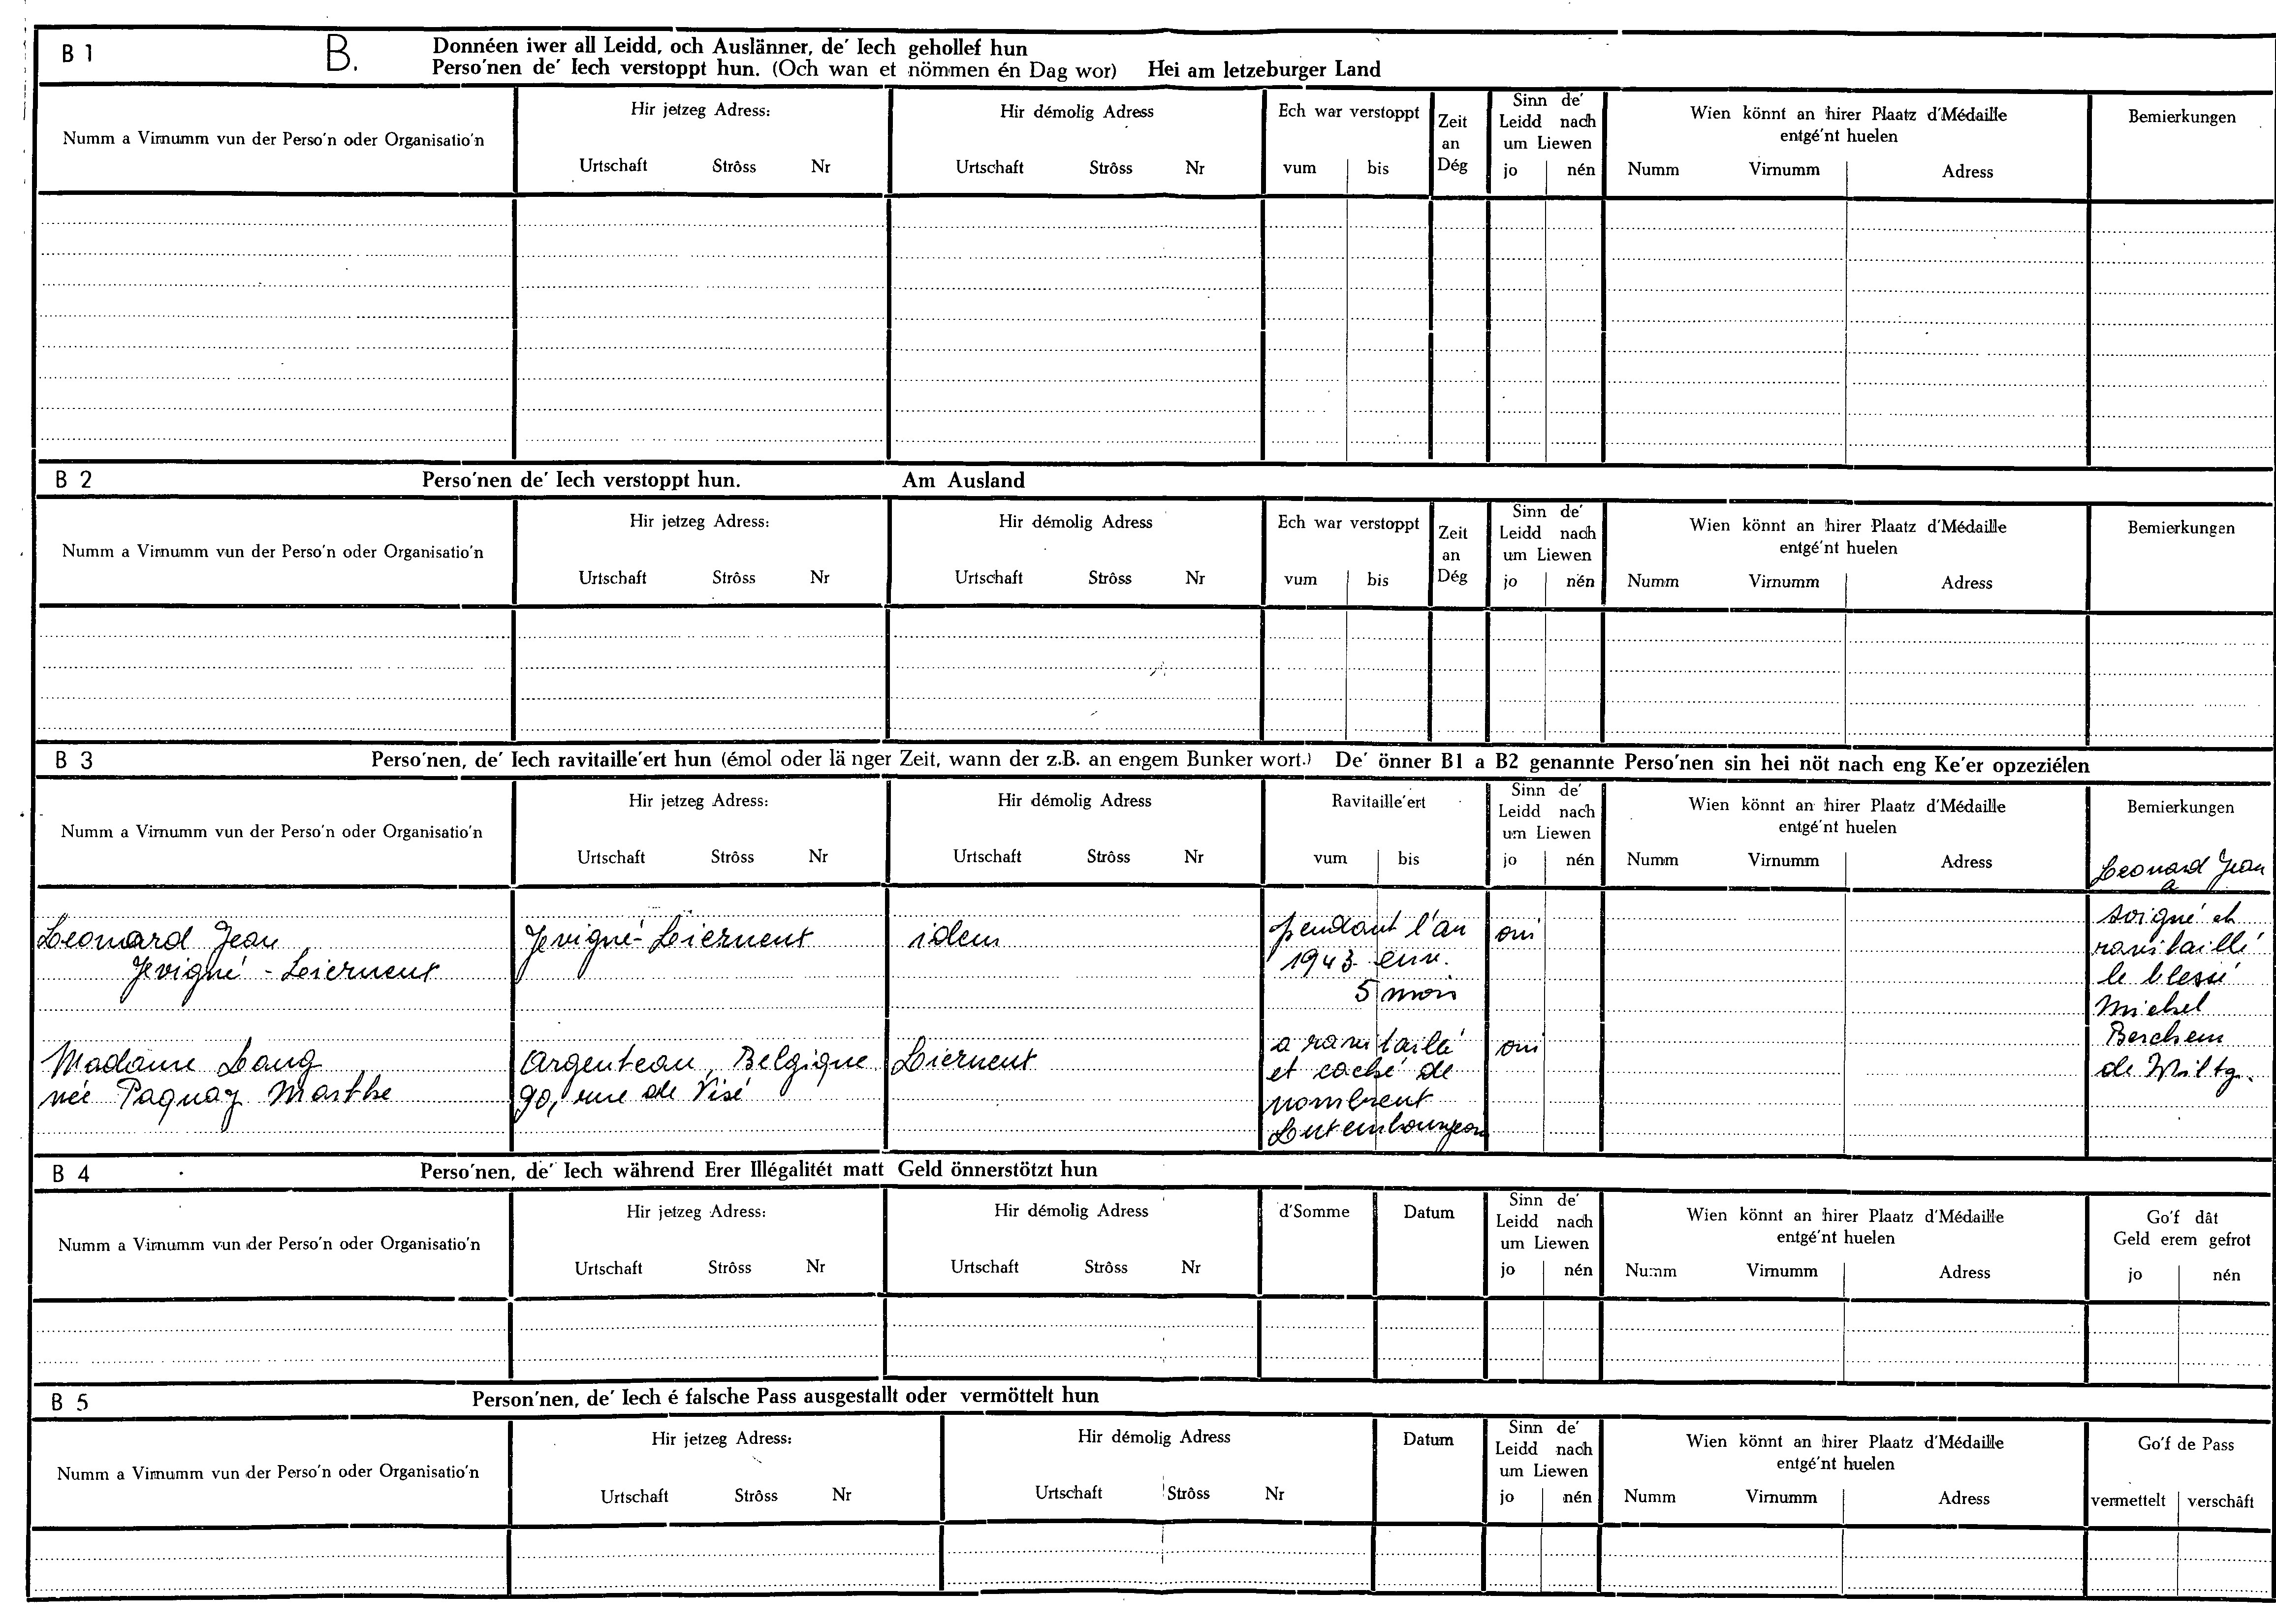 B 1 B. Donnéen iwer all Leidd, och Auslänner, de' Iech gehollef hun
Perso'nen de' Iech verstoppt hun. (Och wan et nömmen én Dag wor) Hei am letzeburger Land
Numm a Virnumm vun der Perso'n oder Organisatio'n
Hir jetzeg Adress:
Urtschaft Strôss Nr
Hir démolig Adress
Urtschaft Strôss Nr
Ech war verstoppt
vum bis
Zeit
an
Dég
Sinn de'
Leidd nach
um Liewen
jo nén
Wien könnt an hirer Plaatz d'Médaille
entgé'nt huelen
Numm Virnumm Adress
Bemierkungen
B 2 Perso'nen de' Iech verstoppt hun. Am Ausland
Numm a Virnumm vun der Perso'n oder Organisatio'n
Hir jetzeg Adress:
Urtschaft Strôss Nr
Hir démolig Adress
Urtschaft Strôss Nr
Ech war verstoppt
vum bis
Zeit
an
Dég
Sinn de'
Leidd nach
um Liewen
jo nén
Wien könnt an hirer Plaatz d'Médaille
entgé'nt huelen
Numm Virnumm Adress
Bemierkungen
B 3 Perso'nen, de' Iech ravitaille'ert hun (émol oder lä nger Zeit, wann der z.B. an engem Bunker wort.) De' önner B1 a B2 genannte Perso'nen sin hei nöt nach eng Ke'er opzeziélen
Numm a Virnumm vun der Perso'n oder Organisatio'n
Hir jetzeg Adress:
Urtschaft Strôss Nr
Hir démolig Adress
Urtschaft Strôss Nr
Ravitaille'ert
vum bis
Sinn de'
Leidd nach
um Liewen
jo nén
Wien könnt an hirer Plaatz d'Médaille
entgé'nt huelen
Numm Virnumm Adress
Bemierkungen
Leonard Jean
Jevigné - Lierneux
Jevigné-Lierneux
idem
pendant l'an
1943 env.
5 mois
oui
Leonard Jean
a
soigné et
ravitaillé
le blessé
Michel
Berchem
de Wiltz.
Madame Lang
née Paquay Marthe
Argenteau, Belgique
90, rue de Visé
Lierneux
a ravitaillé
et caché de
nombreux
Luxembourgeois
oui
B 4 Perso'nen, de' Iech während Erer Illégalitét matt Geld önnerstötzt hun
Numm a Virnumm vun der Perso'n oder Organisatio'n
Hir jetzeg Adress:
Urtschaft Strôss Nr
Hir démolig Adress
Urtschaft Strôss Nr
d'Somme
Datum
Sinn de'
Leidd nach
um Liewen
jo nén
Wien könnt an hirer Plaatz d'Médaille
entgé'nt huelen
Numm Virnumm Adress
Go'f dât
Geld erem gefrot
jo nén
B 5 Person'nen, de' Iech é falsche Pass ausgestallt oder vermöttelt hun
Numm a Virnumm vun der Perso'n oder Organisatio'n
Hir jetzeg Adress:
Urtschaft Strôss Nr
Hir démolig Adress
Urtschaft Strôss Nr
Datum
Sinn de'
Leidd nach
um Liewen
jo nén
Wien könnt an hirer Plaatz d'Médaille
entgé'nt huelen
Numm Virnumm Adress
Go'f de Pass
vermettelt verschâft